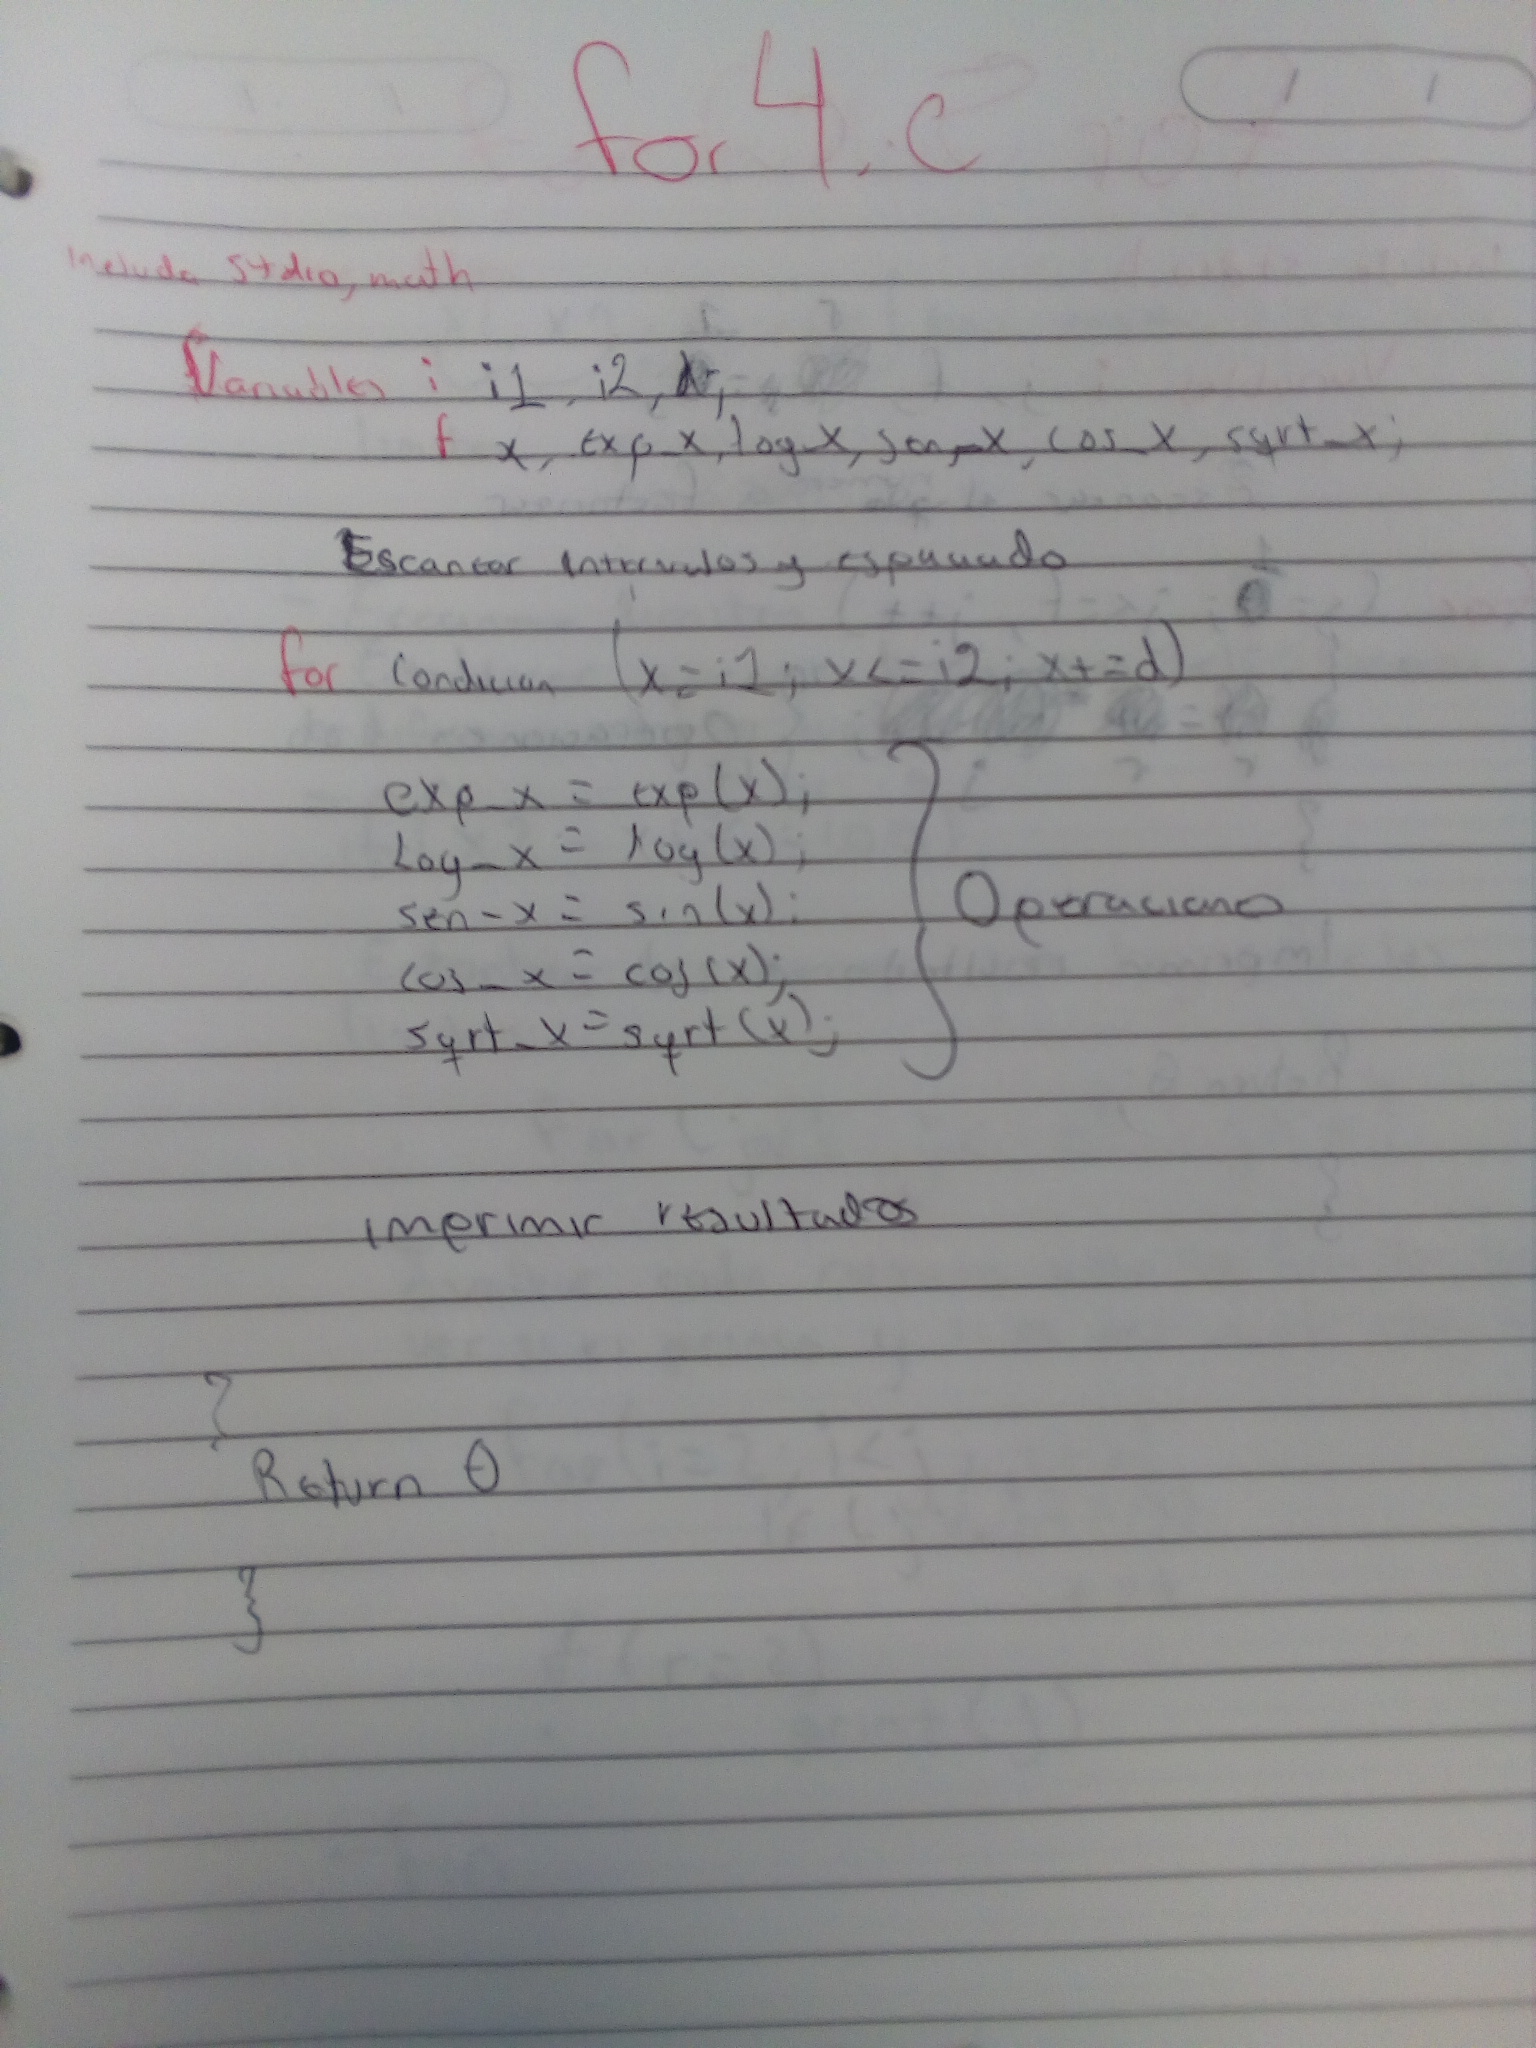 for 4.c
include stdio, math
Variables i i1, i2,
f x, exp_x, log_x, sen_x, cos_x, sqrt_x;
Escanear intervalos y espaciado
for condicion (x=i1; x<=i2; x+=d)
exp_x = exp(x);
Log_x = log(x);
sen-x = sin(x);
cos_x = cos(x);
sqrt_x = sqrt(x);
} Operaciones
imprimir resultados
}
Return 0
}